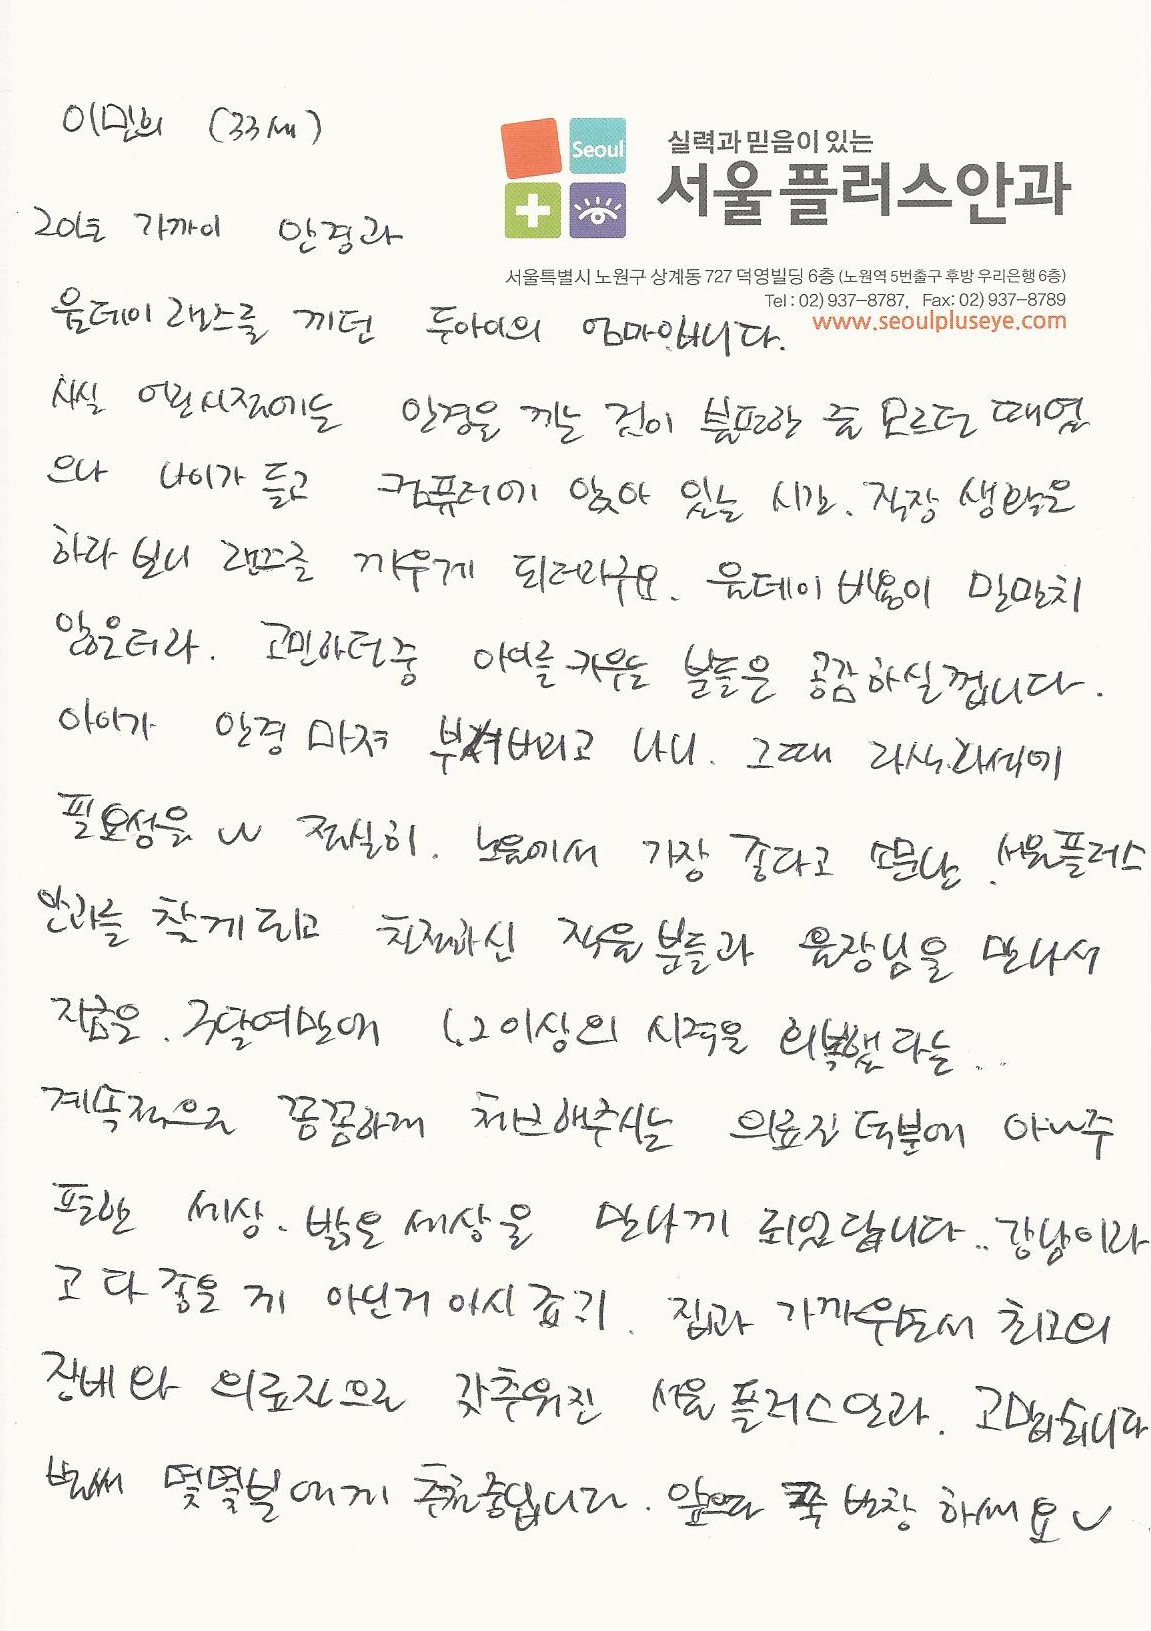 이민희 (33세)
Seoul
실력과 믿음이 있는
서울플러스안과
서울특별시 노원구 상계동 727 덕영빌딩 6층 (노원역 5번출구 후방 우리은행 6층)
Tel : 02) 937-8787, Fax: 02) 937-8789
www.seoulpluseye.com
20년 가까이 안경과
원데이 렌즈를 끼던 두아이의 엄마입니다.
사실 어린시절에는 안경을 끼는 것이 불편한 줄 모르던 때였
으나 나이가 들고 컴퓨터에 앉아 있는 시간. 직장 생활을
하다 보니 렌즈를 끼우게 되더라구요. 원데이 비용이 만만치
않은터라. 고민하던중 아이를 키우는 분들은 공감하실껍니다.
아이가 안경 마저 부셔버리고 나니. 그때 라식.라섹에
필요성을 ᴗᴗ 절실히. 노원에서 가장 좋다고 소문난 서울플러스
안과를 찾게되고 친절하신 직원분들과 원장님을 만나서
지금은. 두달여만에 1.2이상의 시력을 회복했다는...
계속적으로 꼼꼼하게 체크해주시는 의료진 덕분에 아~주
편한 세상. 밝은 세상을 만나게 되었답니다.. 강남이라
고 다 좋은 게 아닌거 아시죠?! 집과 가까우면서 최고의
장비와 의료진으로 갖추워진 서울플러스안과. 고맙습니다
벌써 몇몇분에게 추천중입니다. 앞으로 쭉 번창 하세요~